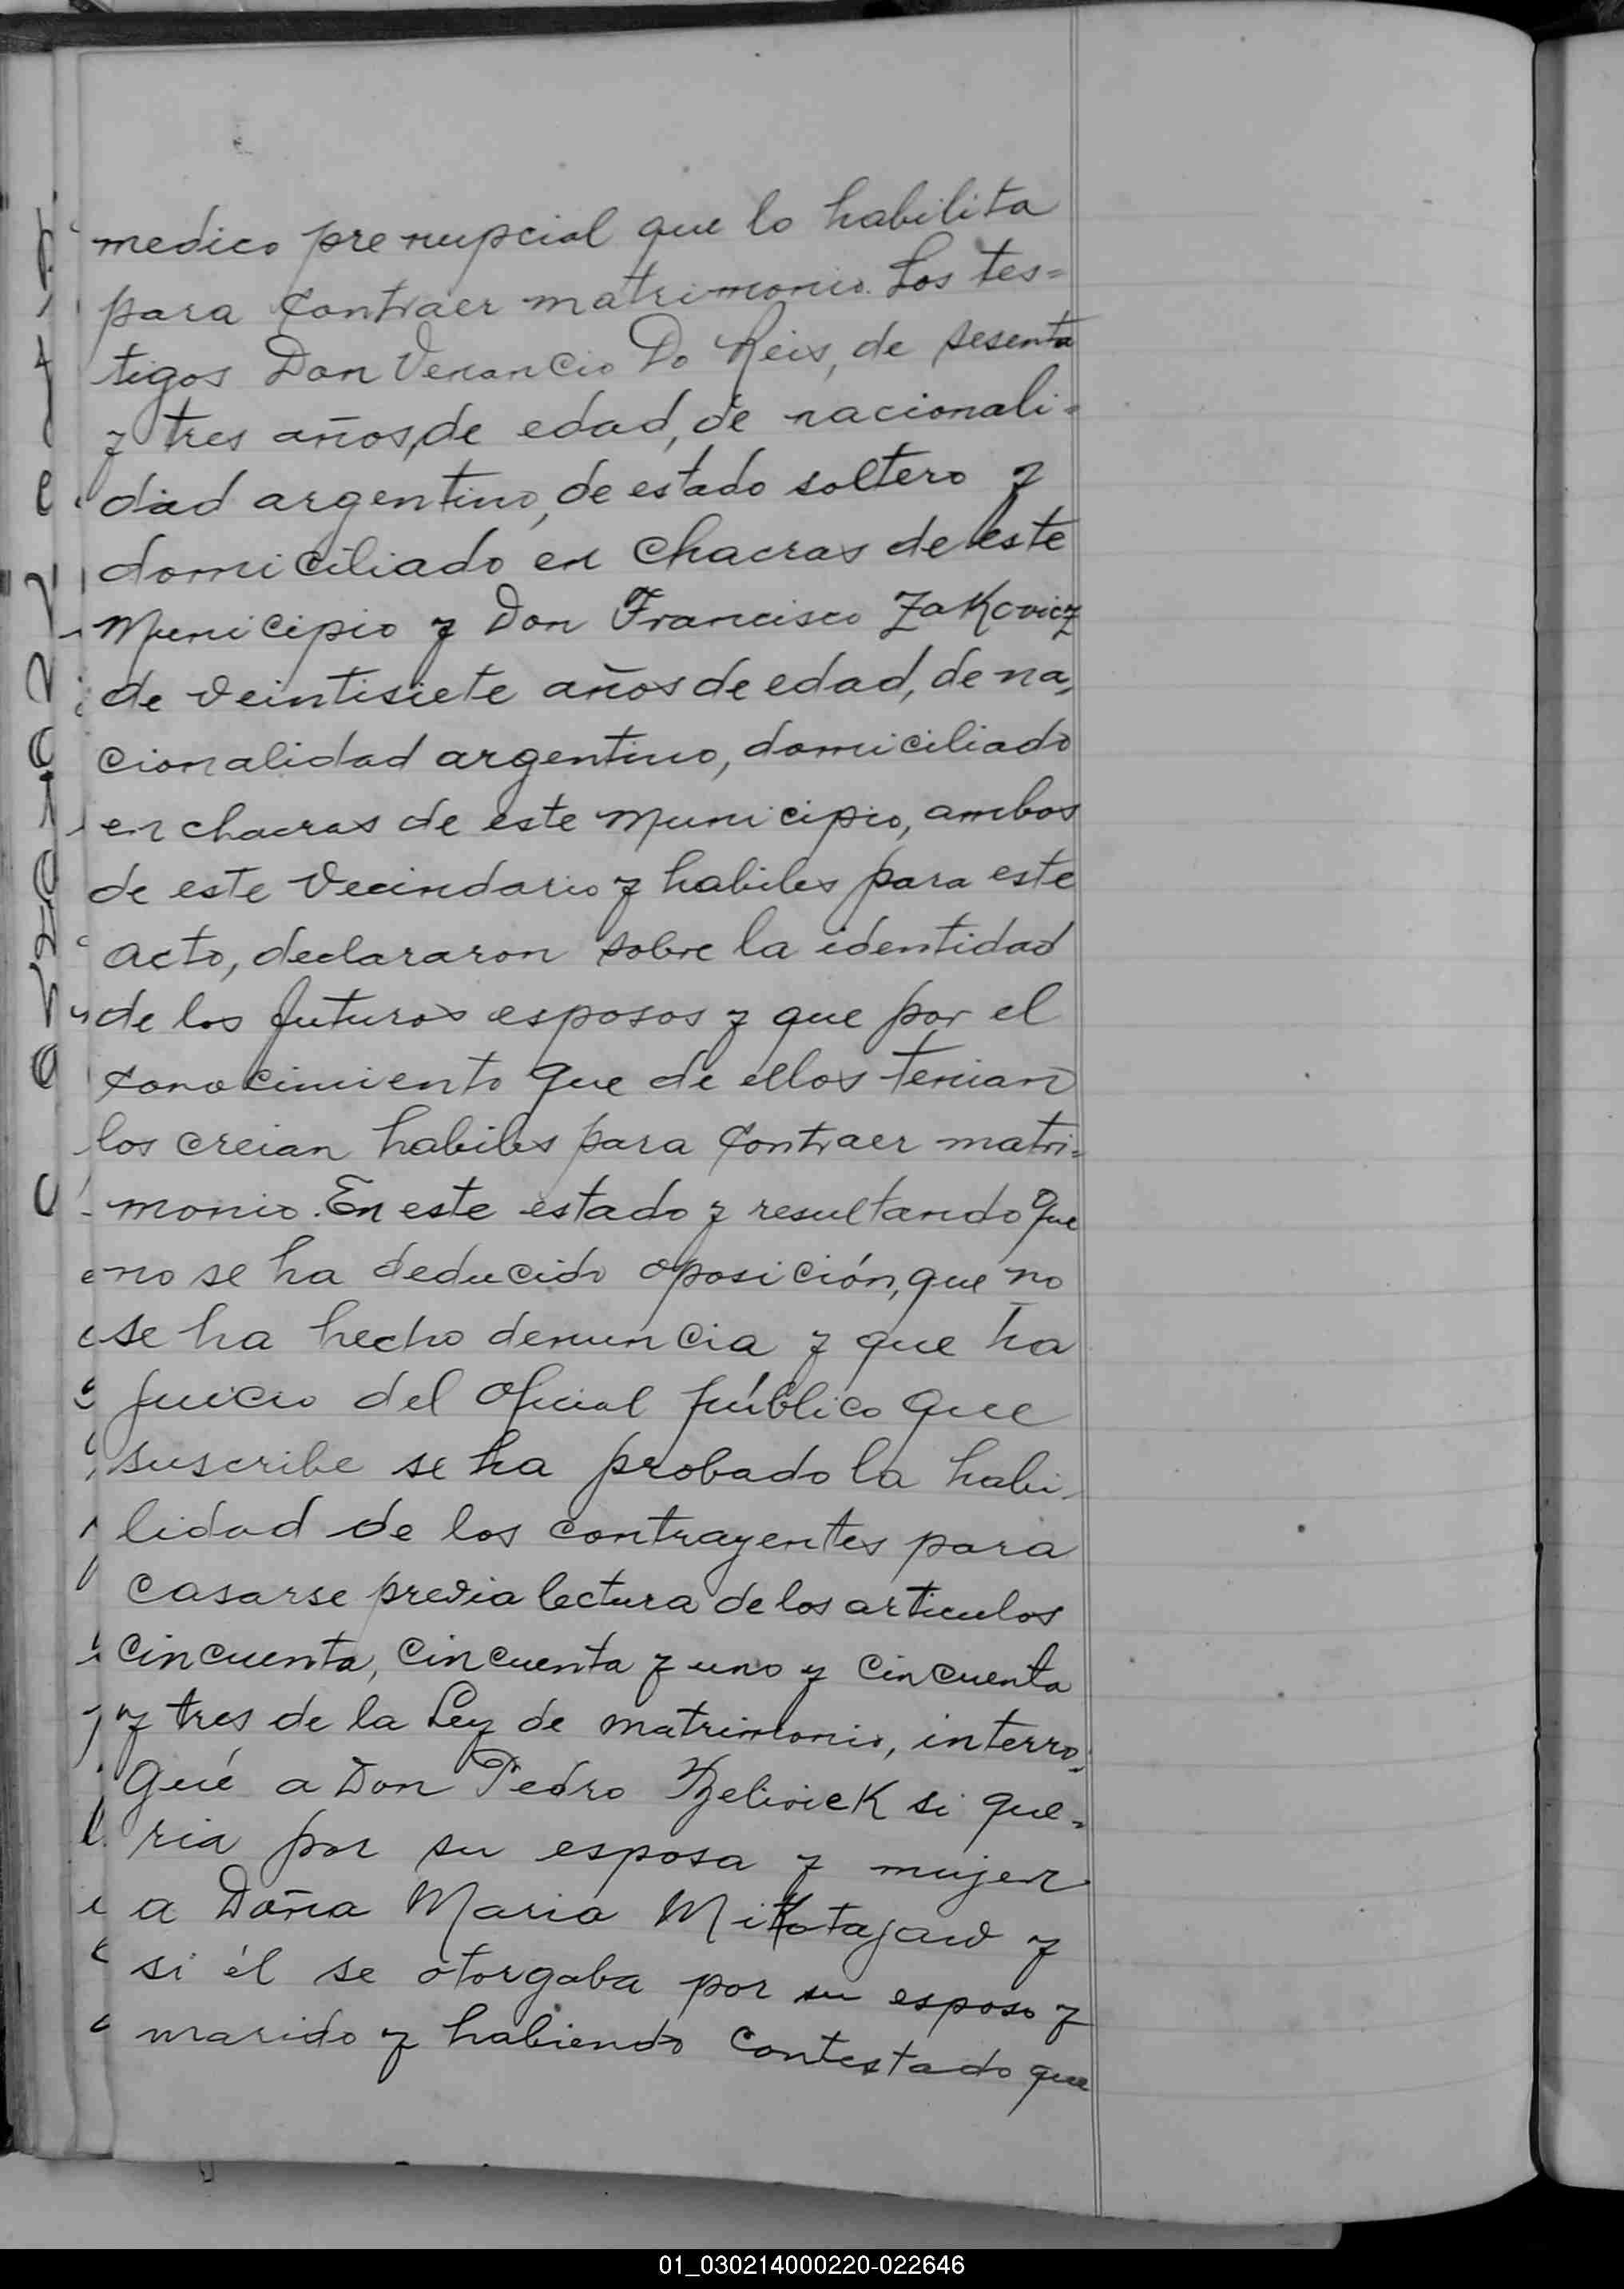 medico pre nupcial que lo habilita
para contraer matrimonio. Los tes=
tigos Don Venancio Do Reis, de sesenta
y tres años, de edad, de nacionali=
dad argentino, de estado soltero y
domiciliado en chacras de este
Municipio y Don Francisco Zakovicz
de veintisiete años de edad, de na,
cionalidad argentino, domiciliado
en chacras de este Municipio, ambos
de este vecindario y habiles para este
acto, declararon sobre la identidad
de los futuros esposos y que por el
conocimiento que de ellos tenian
los creian habiles para contraer matri=
monio. En este estado y resultando que
no se ha deducido oposición, que no
se ha hecho denuncia y que ha
juicio del oficial público que
suscribe se ha probado la habi-
lidad de los contrayentes para
casarse previa lectura de los articulos
cincuenta, cincuenta y uno y cincuenta
y tres de la Ley de matrimonio, interro=
gué a Don Pedro si que=
ria por su esposa y mujer
a Doña Maria y
si él se otorgaba por su esposo y
marido y habiendo contestado que
01_030214000220-022646